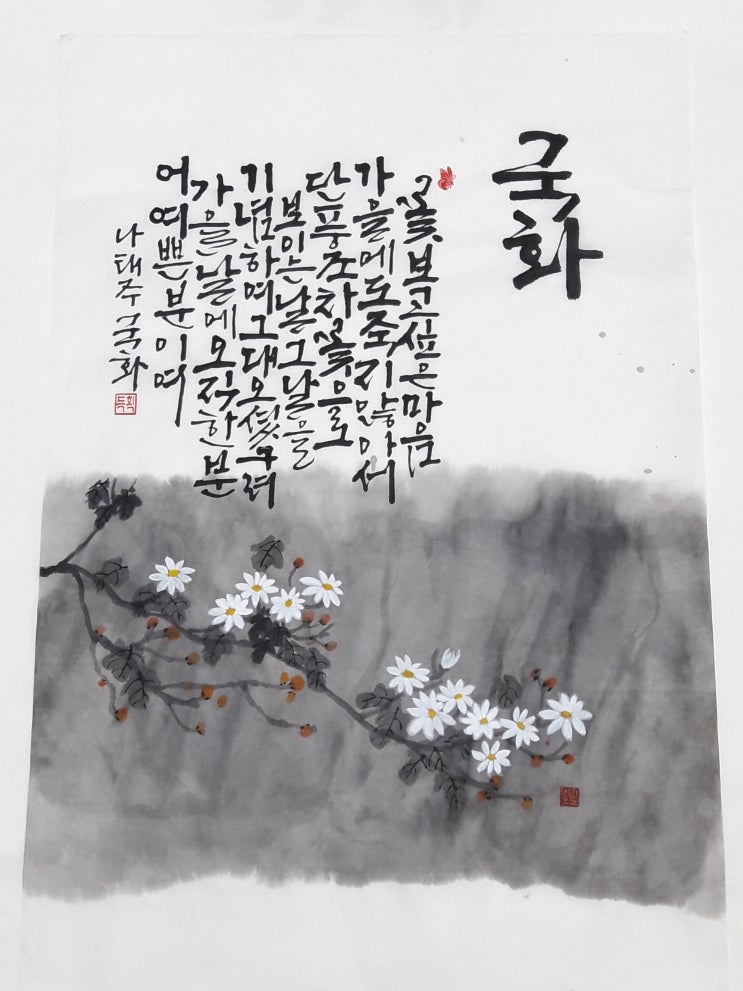 국화
꽃복고싶은마음
가을에도죽지않아서
단풍조차꽃으로
보이는날그날을
기념하여그대오셨구려
가을날에오직한분
어여쁜분이여
나태주국화